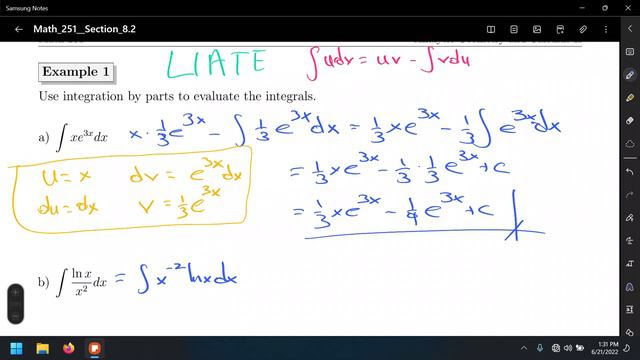 Samsung Notes
Math_251__Section_8.2
Example 1
LIATE ∫udv = uv - ∫vdu
Use integration by parts to evaluate the integrals.
a) ∫ xe^{3x} dx x · 1/3 e^{3x} - ∫ 1/3 e^{3x} dx = 1/3 x e^{3x} - 1/3 ∫ e^{3x} dx
u = x dv = e^{3x} dx
du = dx v = 1/3 e^{3x}
= 1/3 x e^{3x} - 1/3 · 1/3 e^{3x} + c
= 1/3 x e^{3x} - 1/9 e^{3x} + c
b) ∫ ln x / x² dx = ∫ x^{-2} ln x dx
1:31 PM
6/21/2022